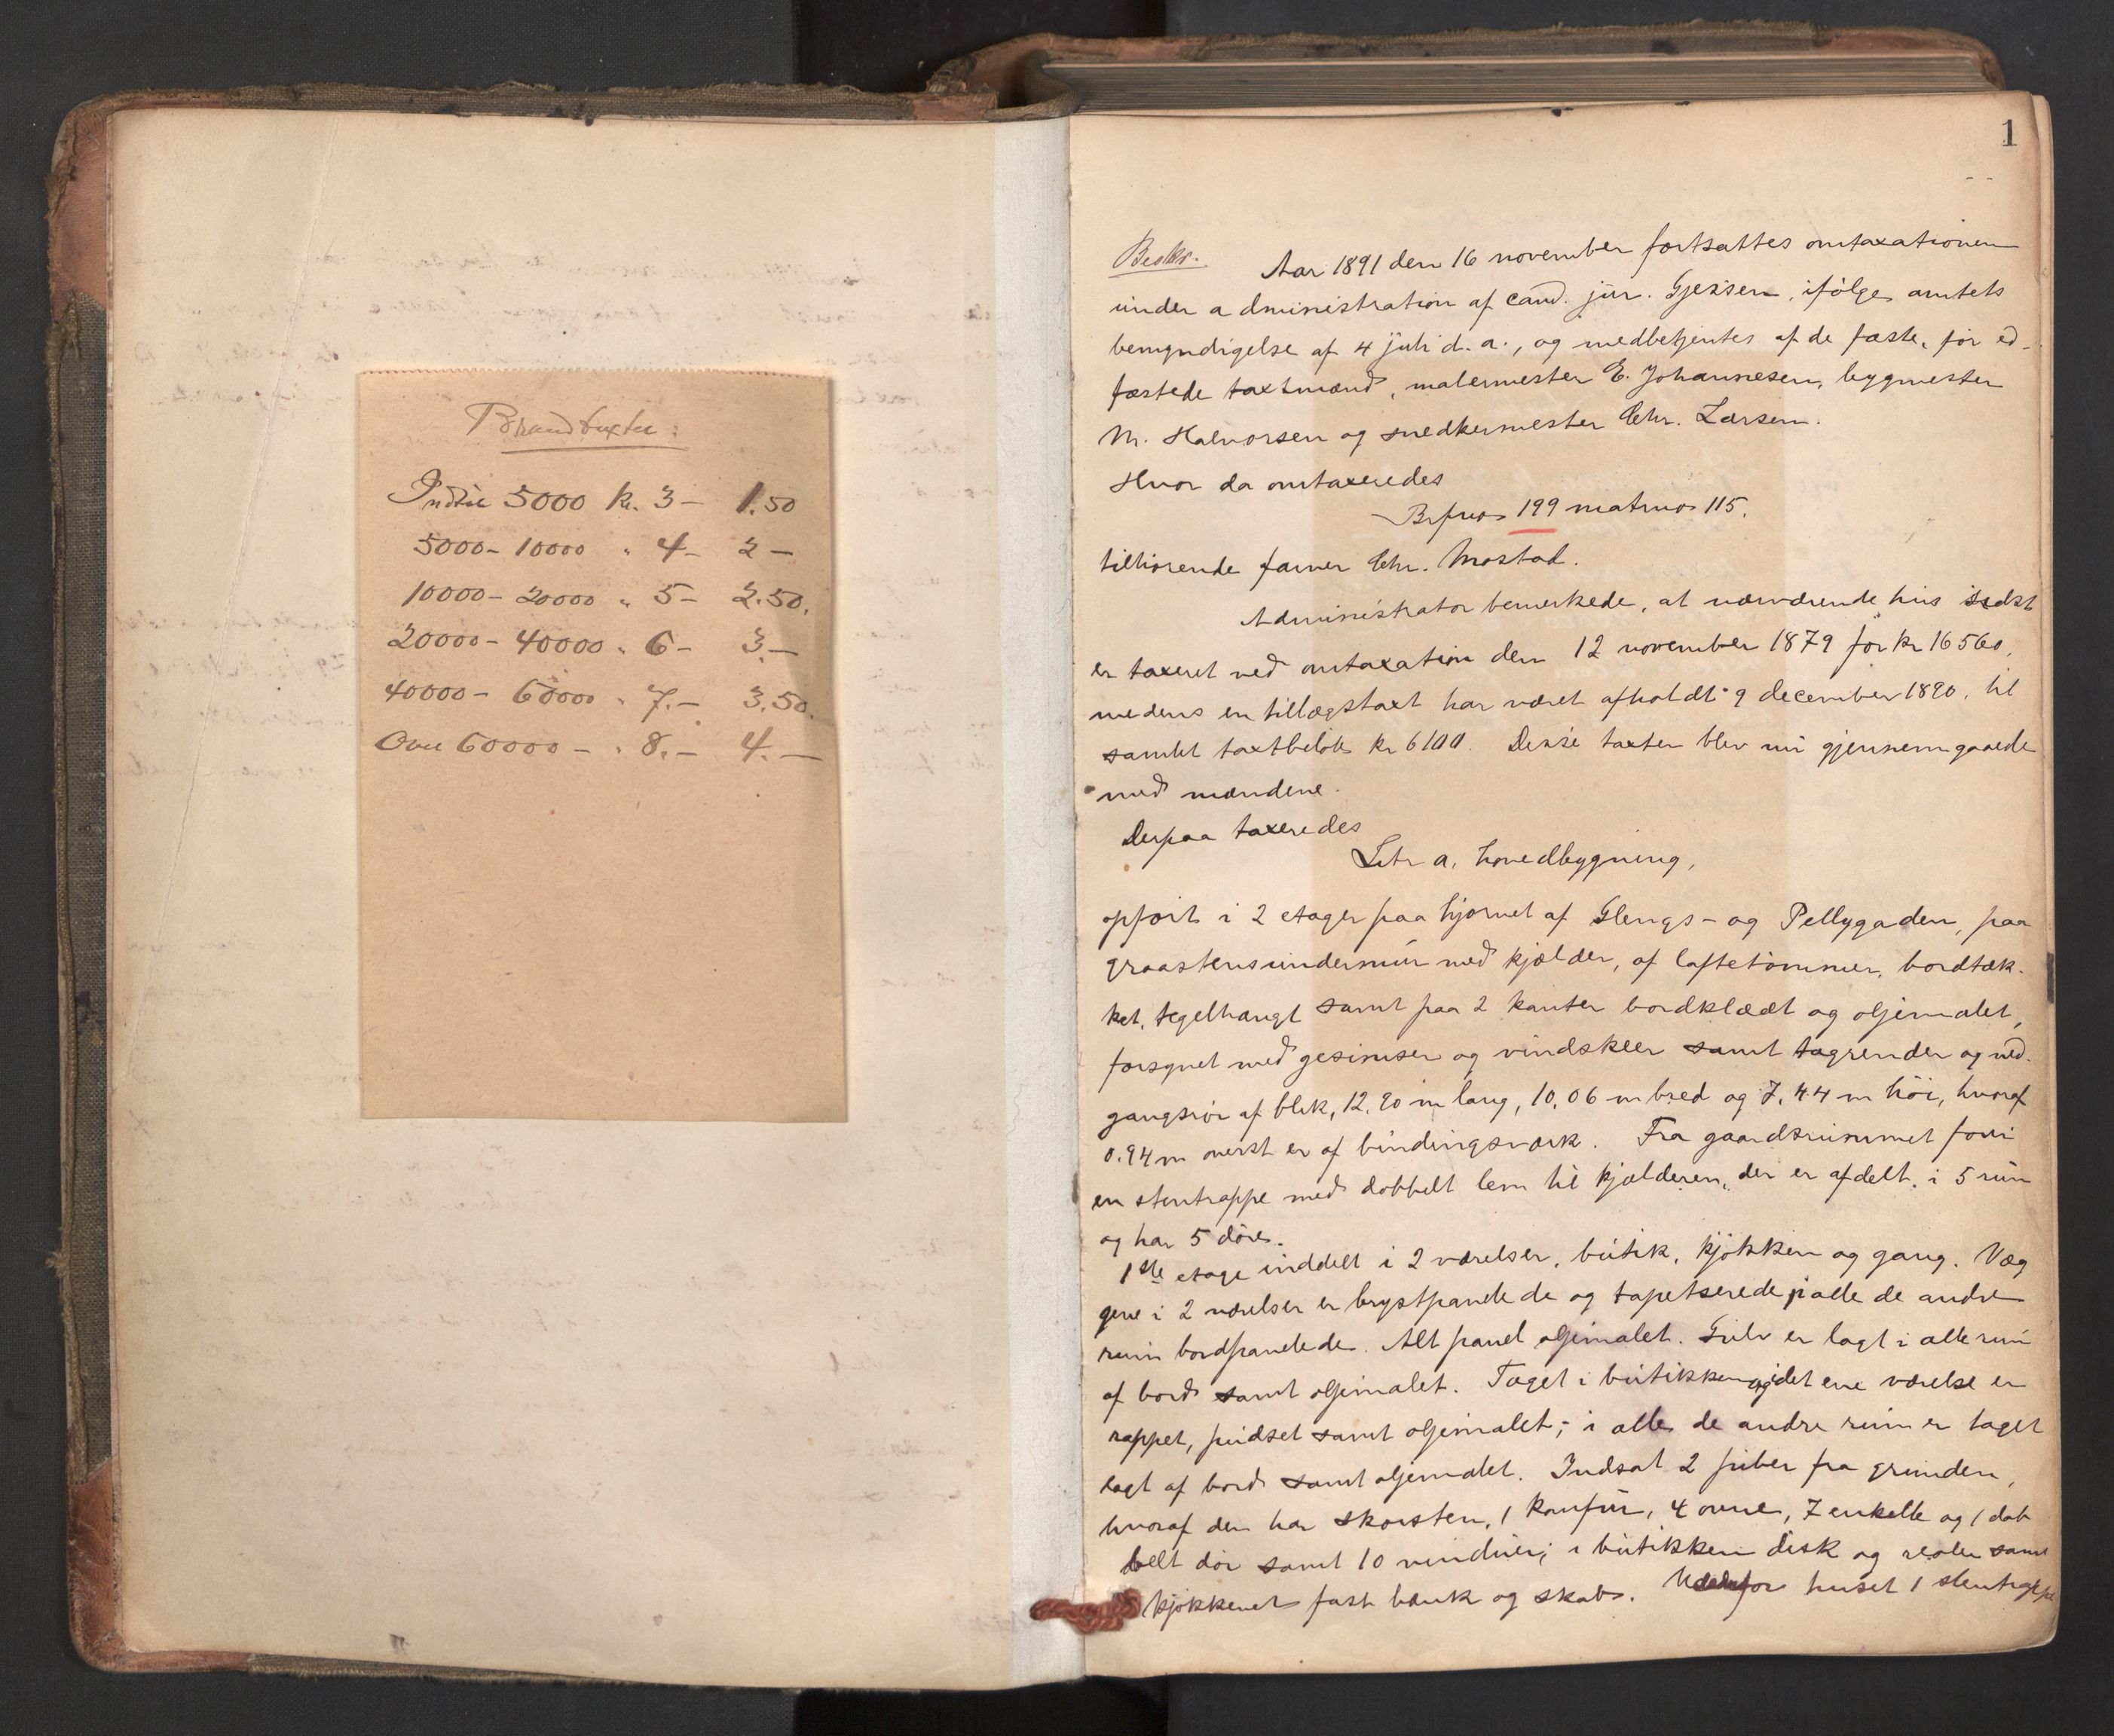 Brandtaxter:
Indtil 5000 kr. 3 — 1.50
5000 — 10000 " 4 — 2 —
10000 — 20000 " 5 — 2.50.
20000 — 40000 " 6 — 3.—
40000 — 60000 " 7.— 3.50.
Over 60000 — " 8.— 4.—
1
Beskr. Aar 1891 den 16 november fortsattes omtaxationen
under administration af cand. jur. Gjessen, ifølge amtets
bemyndigelse af 4 juli d. a., og medbetjentes af de faste, før ed-
fæstede taxtmænd, malermester E. Johannesen, bygmester
M. Halvorsen og snedkermester Chr. Larsen.
Hvor da omtaxeredes
Brfno 199 matrno 115.
tilhørende farver Chr. Mostad.
Administrator bemerkede, at nærværende hus sidst
er taxeret ved omtaxation den 12 november 1879 for kr 16560,
medens en tillægstaxt har været afholdt 9 december 1890, til
samlet taxtbeløb kr 6100. Disse taxter blev nu gjennemgaaede
med mændene.
Derpaa taxeredes
Litr a. hovedbygning,
opført i 2 etager paa hjørnet af Glengs- og Pellygaden, paa
graastensundermur med kjælder, af laftetømmer, bordtæk-
ket, tegelhængt samt paa 2 kanter bordklædt og oljemalet,
forsynet med gesimser og vindskeer samt tagrender og ned-
gangsrør af blik, 12,90 m lang, 10,06 m bred og 7,44 m høi, hvoraf
0.94 m øverst er af bindingsværk. Fra gaardsrummet fører
en stentrappe med dobbelt lem til kjælderen, der er afdelt i 5 rum
og har 5 døre.
1ste etage inddelt i 2 værelser, butik, kjøkken og gang. Væg
gene i 2 værelser er brystpanelede og tapetserede, i alle de andre
rum bordpanelede. Alt panel oljemalet. Gulv er lagt i alle rum
af bord samt oljemalet. Taget i butikken og i det ene værelse er
rappet, pudset samt oljemalet; i alle de andre rum er taget
lagt af bord samt oljemalet. Indsat 2 piber fra grunden,
hvoraf den har skorsten, 1 komfur, 4 ovne, 7 enkelte og 1 dob
belt dør samt 10 vinduer; i butikken disk og reoler samt
i kjøkkenet fast bænk og skab. Udenfor huset 1 stentrappe